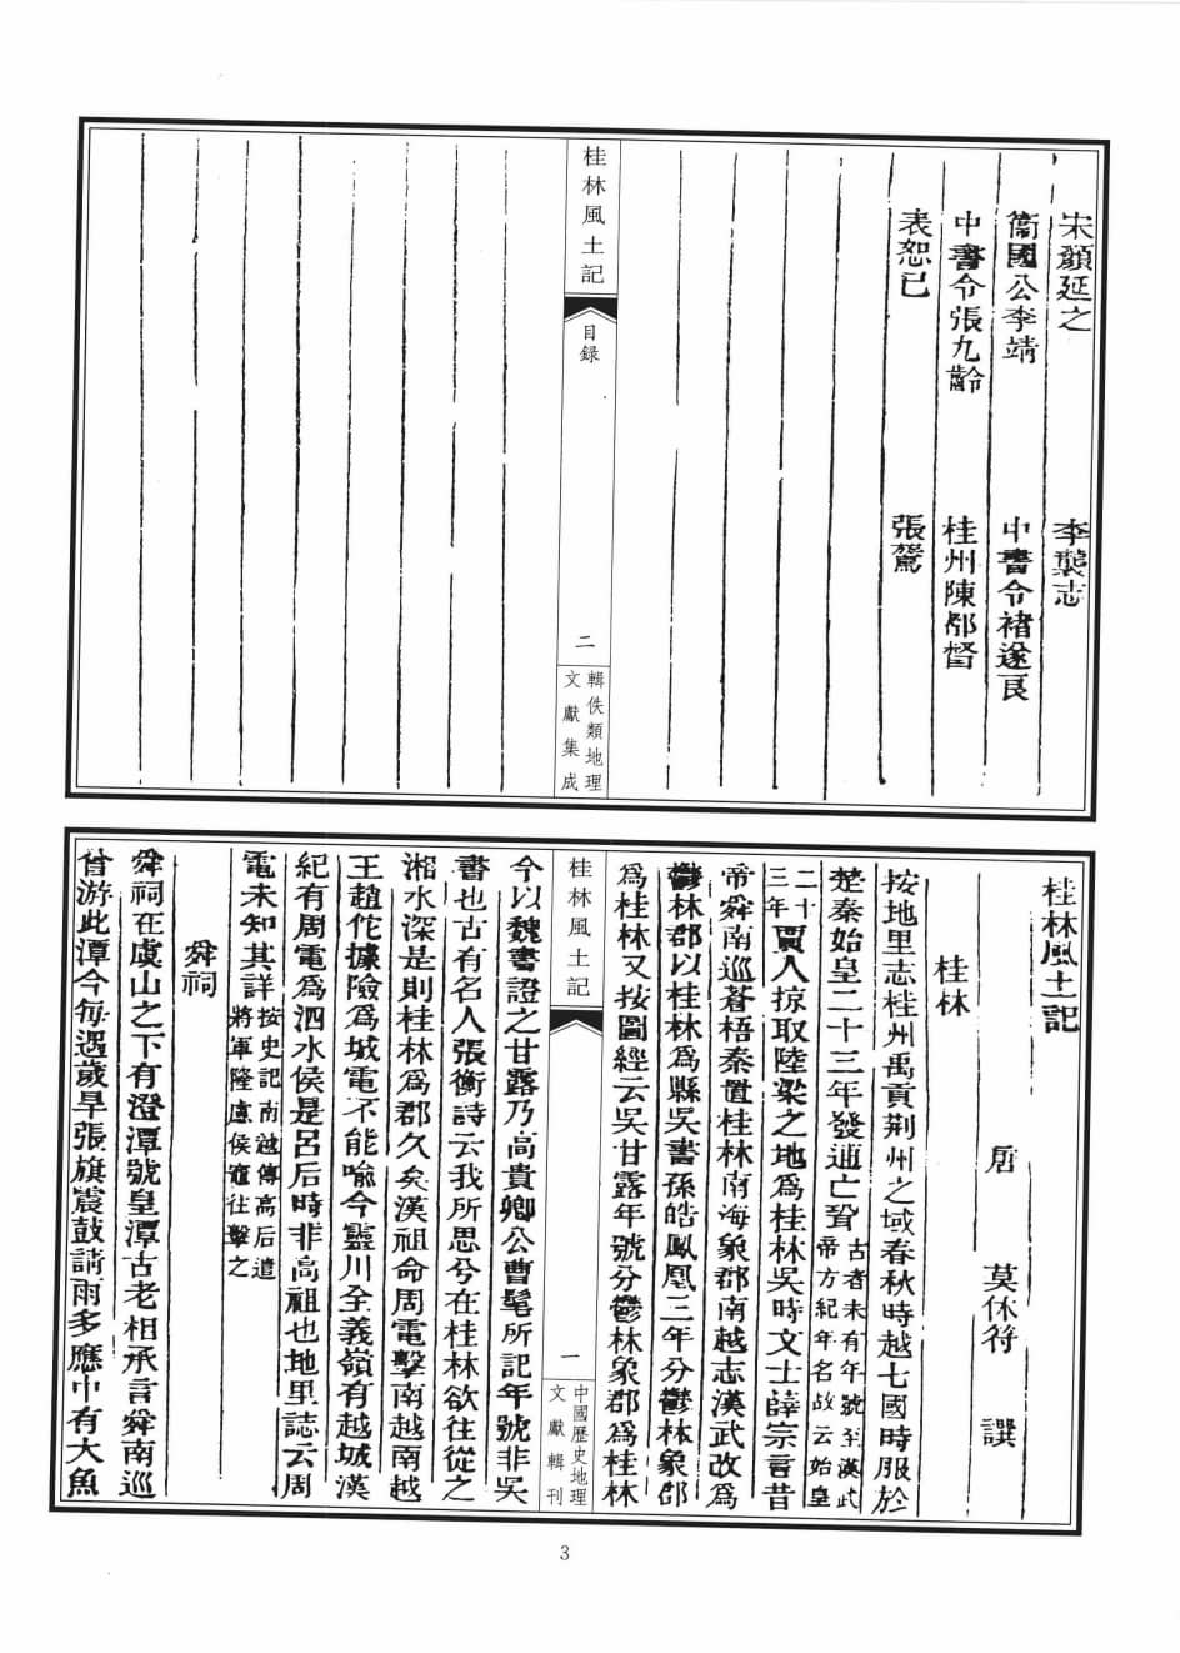 宋顏延之　李襲志
衞國公李靖　中書令褚遂良
中書令張九齡　桂州陳都督
袁恕已　張鷟
桂林風土記
目録
二
輯佚類地理
文獻集成
桂林風土記
唐　莫休符　譔
桂林
按地里志桂州禹貢荆州之域春秋時越七國時服於
楚秦始皇二十三年發逋亡㕝古者未有年號至漢武
帝方紀年名故云始皇
二十
三年賈人掠取陸梁之地爲桂林吳時文士薛宗言昔
帝舜南巡蒼梧秦置桂林南海象郡南越志漢武改爲
鬱林郡以桂林爲縣吳書孫皓鳳凰三年分鬱林象郡
爲桂林又按圖經云吳甘露年號分鬱林象郡爲桂林
桂林風土記
一
中國歷史地理
文獻輯刊
今以魏書證之甘露乃高貴鄉公曹髦所記年號非吳
書也古有名人張衡詩云我所思兮在桂林欲往從之
湘水深是則桂林爲郡久矣漢祖命周電擊南越南越
王趙佗據險爲城電不能喻今靈川至義嶺有越城漢
紀有周電爲泗水侯是呂后時非高祖也地里誌云周
電未知其詳按史記南越傳高后遣
將軍隆慮侯竈往擊之
舜祠
舜祠在虞山之下有澄潭號皇潭古老相承言舜南巡
曾游此潭今每遇歲旱張旗震鼓請雨多應中有大魚
3